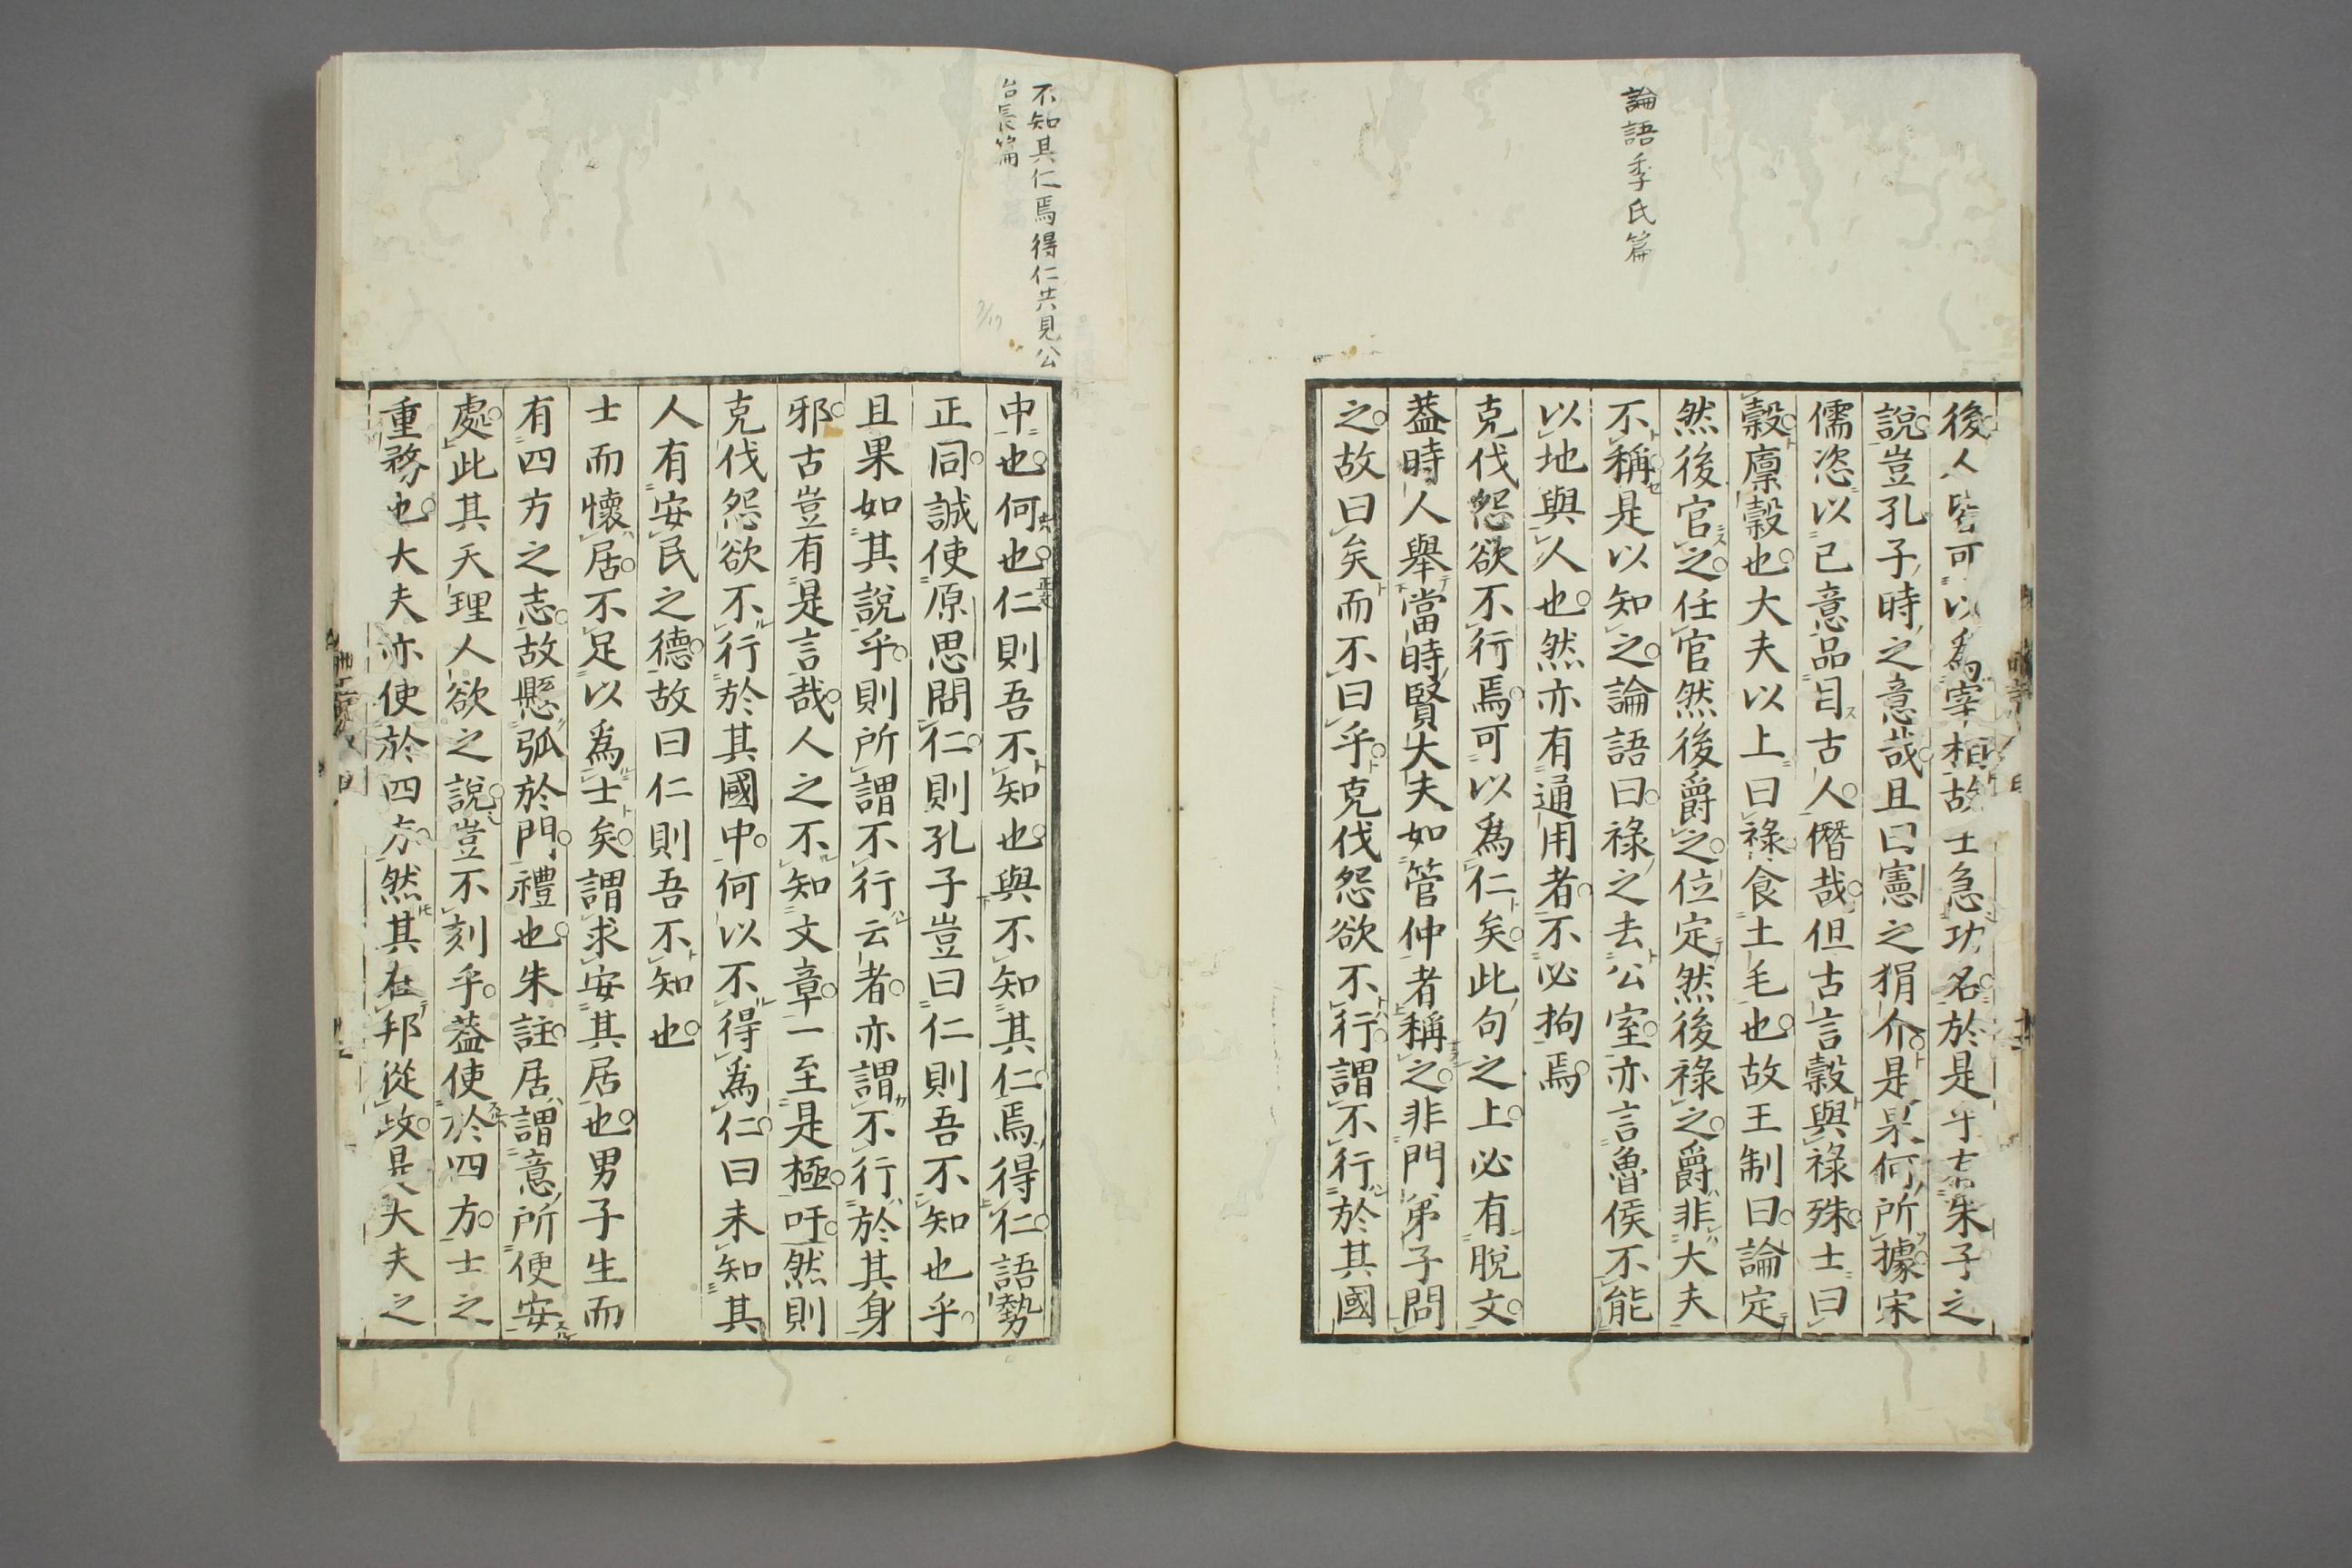 論語季氏篇
後人皆可以為宰相故士急功名於是乎有朱子之
說豈孔子時之意哉且曰憲之狷介是果何所據宋
儒恣以己意品目古人僭哉但古言穀與祿殊士曰
穀廩穀也大夫以上曰祿食土毛也故王制曰論定
然後官之任官然後爵之位定然後祿之爵非大夫
不稱是以知之論語曰祿之去公室亦言魯侯不能
以地與人也然亦有通用者不必拘焉
克伐怨欲不行焉可以為仁矣此句之上必有脫文
蓋時人舉當時賢大夫如管仲者稱之非門弟子問
之故曰矣而不曰乎克伐怨欲不行謂不行於其國
不知其仁焉得仁共見公
冶長篇
中也何也仁則吾不知也與不知其仁焉得仁語勢
正同誠使原思問仁則孔子豈曰仁則吾不知也乎
且果如其說乎則所謂不行云者亦謂不行於其身
邪古豈有是言哉人之不知文章一至是極吁然則
克伐怨欲不行於其國中何以不得為仁曰未知其
人有安民之德故曰仁則吾不知也
士而懷居不足以為士矣謂求安其居也男子生而
有四方之志故懸弧於門禮也朱註居謂意所便安
處此其天理人欲之說豈不刻乎蓋使於四方士之
重務也大夫亦使於四方然其在邦從政是大夫之